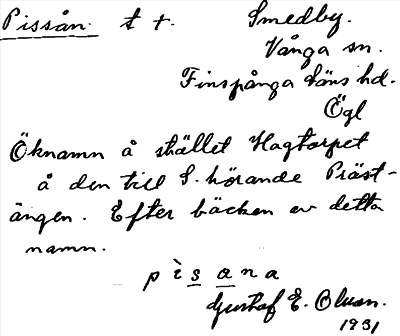 Pissån. t +. Smedby.
Vånga sn.
Finspånga läns hd.
Ögl
Öknamn å stället Hagtorpet
å den till S. hörande Präst-
ängen. Efter bäcken av detta
namn.
pìsana
Gustaf E. Olsson.
1931